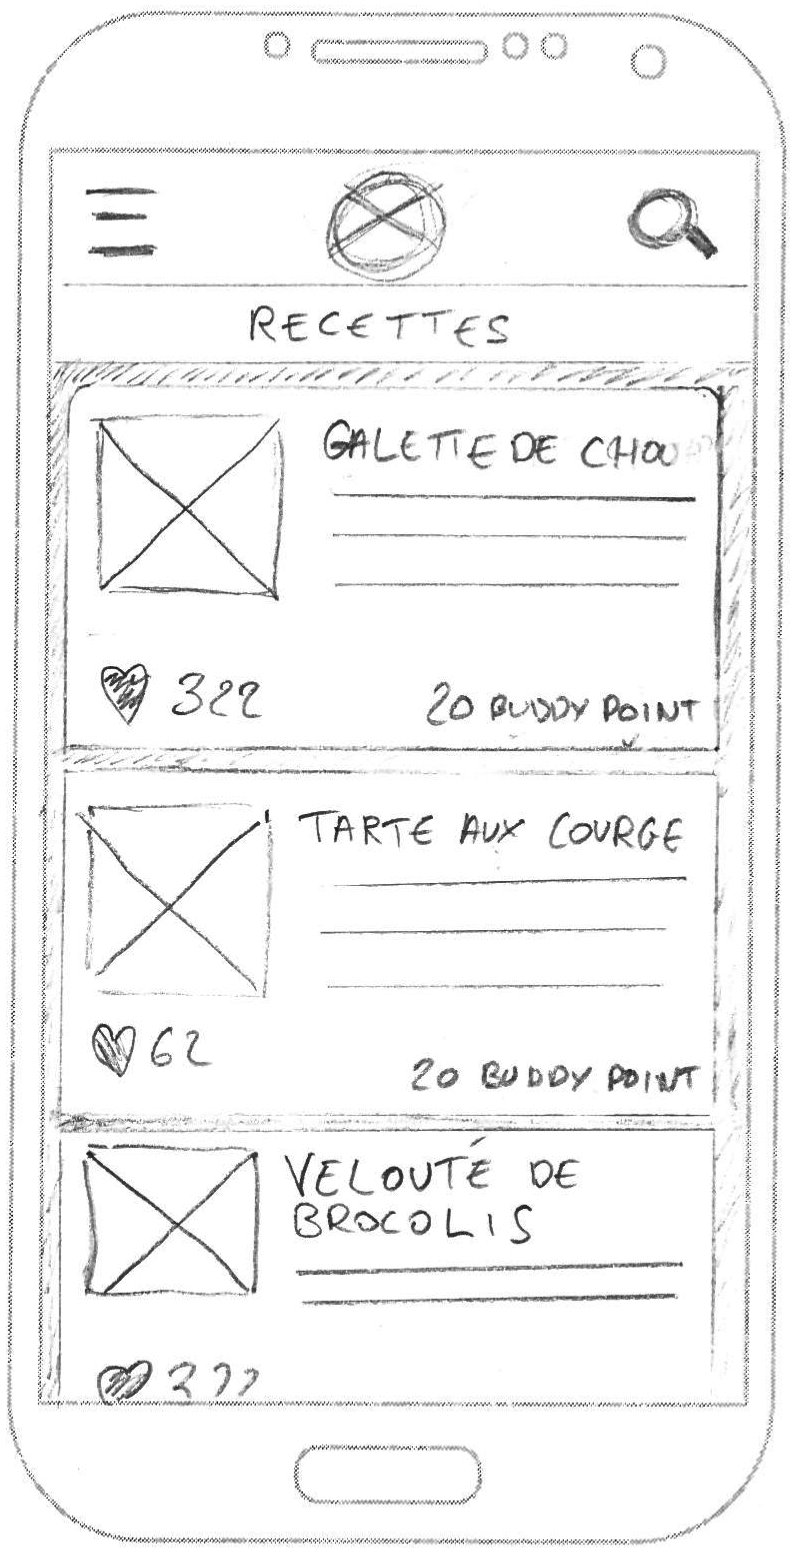 RECETTES
GALETTE DE CHOU
322
20 BUDDY POINT
TARTE AUX COURGE
62
20 BUDDY POINT
VELOUTÉ DE
BROCOLIS